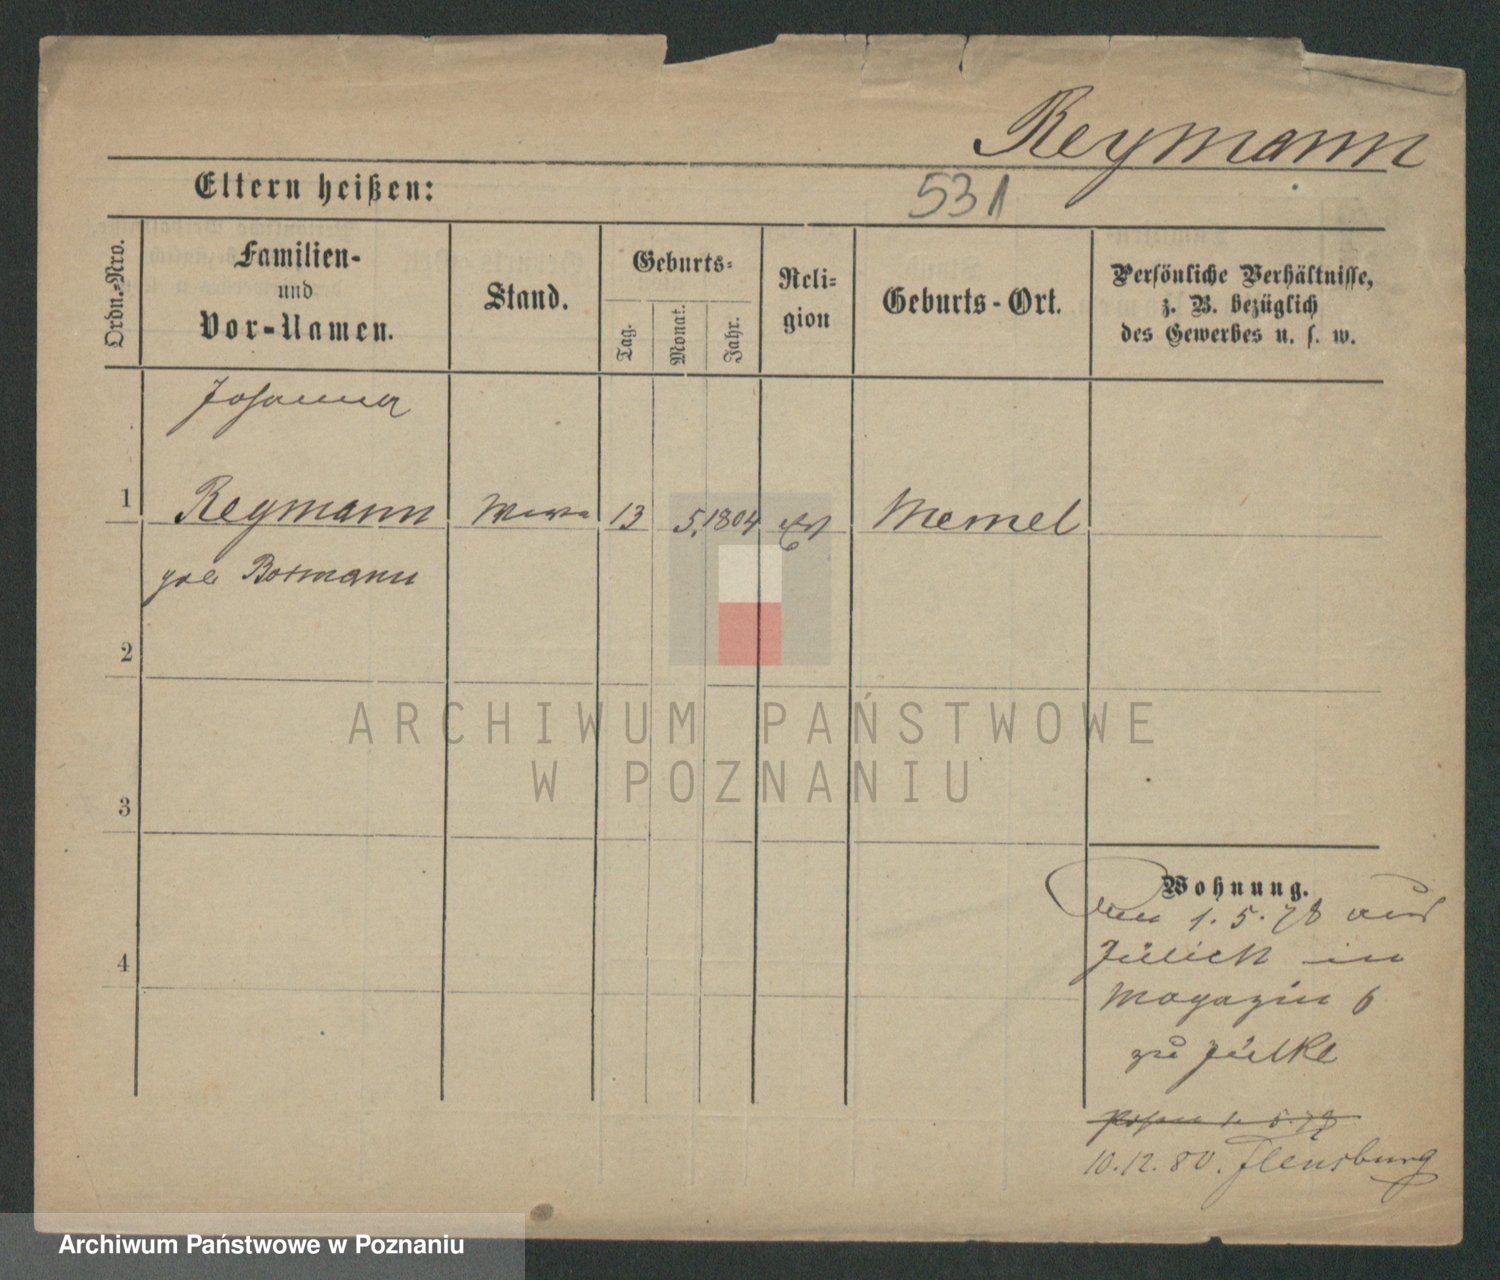 Reymann
Eltern heißen:
531
Ordn.-Nro.
Familien-
und
Vor-Namen.
Stand.
Geburts-
Tag.
Monat.
Jahr.
Reli-
gion
Geburts-Ort.
Persönliche Verhältnisse,
z. B. bezüglich
des Gewerbes u. s. w.
Johanna
1
Reymann
13
5.
1804
Memel
Bormann
2
ARCHIWUM PAŃSTWOWE
W POZNANIU
3
Wohnung.
1. 5. 78 aus
Jülich in
4
Magazin 6
zu Jülke
Posen 1. 5. 78
10. 12. 80. Flensburg
Archiwum Państwowe w Poznaniu